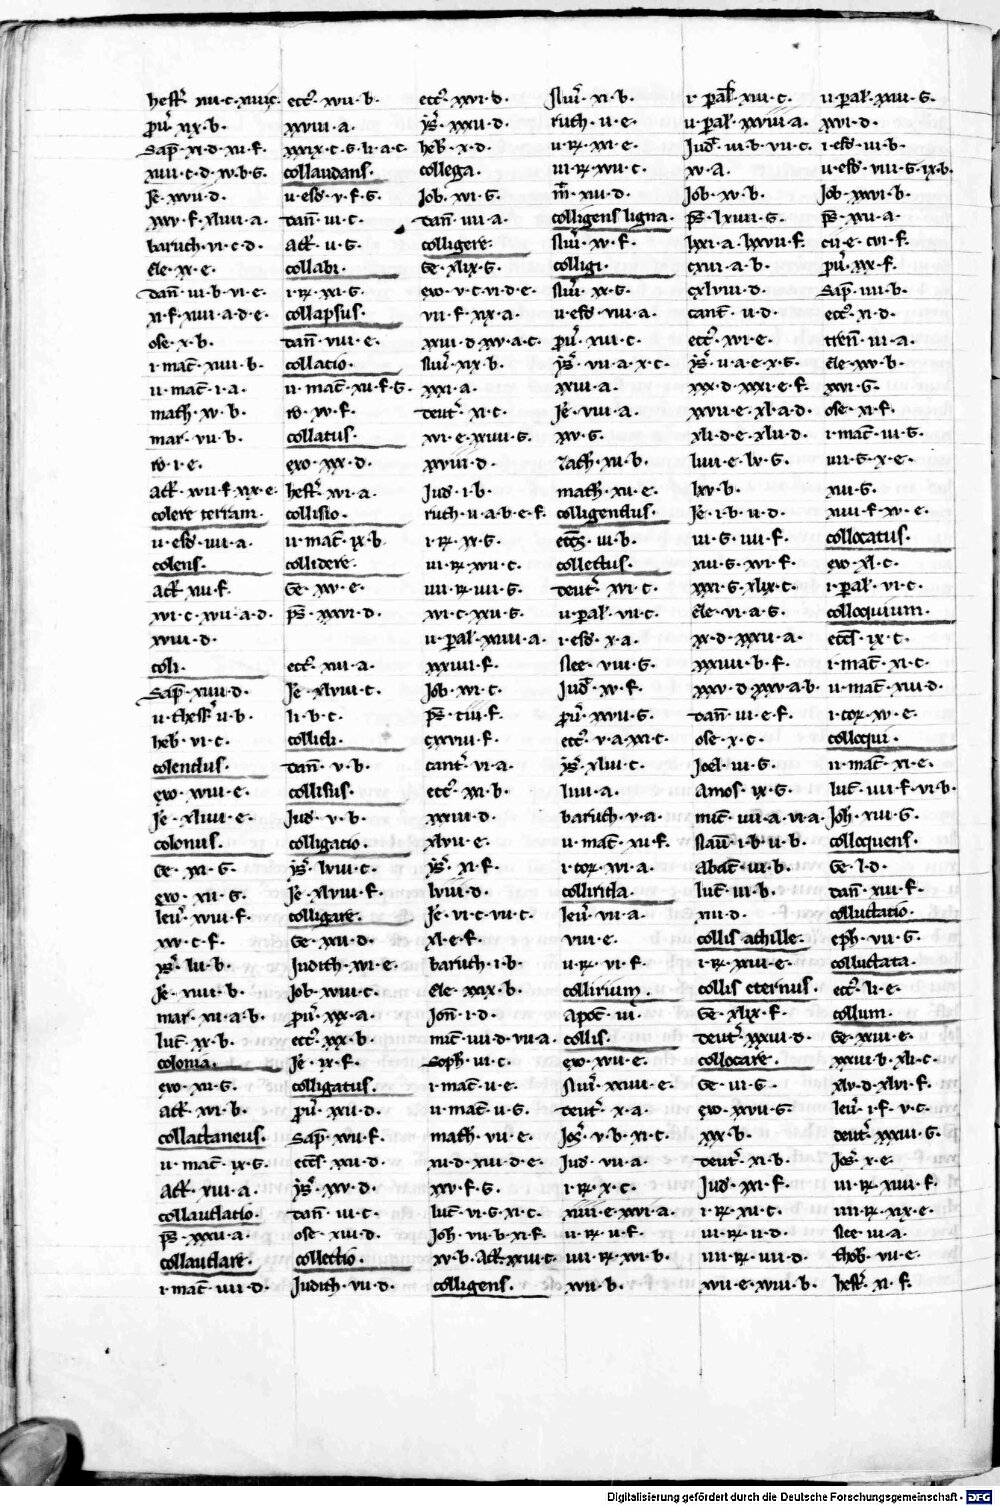 hest͛ xiii·c·xiiii·c·
p͛u͛·xix·b·
Sap̄·xi·d·xii·f·
xiiii·c·d·xv·b·G·
Je·xvii·d·
xxv·f·xliiii·a·
baruch·vi·c·d·
Ele·xx·e·
dan̄·iii·b·vi·e·
xi·f·xiiii·a·d·e·
ose·x·b·
i·mac̄·xiii·b·
ii·mac̄·i·a·
math·xv·b·
mar·vii·b·
ro·i·e·
act̄·xvii·f·xix·e·
colere terram·
ii·esd·iiii·a·
colens·
act̄·xiii·f·
xvi·c·xvii·a·d·
xviii·d·
coli·
Sap̄·xiiii·d·
ii·thess͛·ii·b·
heb·vi·c·
colendus·
exo·xviii·e·
Je·xliiii·e·
colonus·
Ge·xi·G·
exo·xii·G·
leui͛·xviii·f·
xxv·c·f·
ys͛·lii·b·
Je·xiiii·b·
mar·xii·a·b·
luc̄·xx·b·
colonia·
exo·xii·G·
act̄·xvi·b·
collactaneus·
ii·mac̄·ix·G·
act̄·xiii·a·
collaudatio·
ps̄·xxxii·a·
collaudare·
i·mac̄·iiii·d·
ecc͛·xvii·b·
xxviii·a·
xxxix·c·G·li·a·c·
collaudans·
ii·esd·v·f·G·
dan̄·iii·c·
act̄·ii·G·
collabi·
i·rꝝ·xxi·G·
collapsus·
dan̄·viii·e·
collatio·
ii·mac̄·xii·f·G·
ro·xv·f·
collatus·
exo·xxx·d·
hest͛·xvi·a·
collisio·
ii·mac̄·ix·b·
collidere·
Ge·xv·e·
ps̄·xxxvi·d·
ecc͛·xiii·a·
Je·xlviii·c·
li·b·c·
collidi·
dan̄·v·b·
collisus·
Jud·v·b·
colligatio·
ys͛·lviii·c·
Je·xlviii·f·
colligare·
Ge·xxii·d·
Judith·xvi·e·
Job·xviii·c·
p͛u͛·xxx·a·
ecc͛·xxx·b·
Je·ix·f·
colligatus·
p͛u͛·xxii·d·
Sap̄·xvii·f·
eccs̄·xxii·d·
ys͛·xxv·d·
dan̄·iii·c·
ose·xiii·d·
collectio·
Judith·vii·d·
ecc͛·xxvi·d·
ys͛·xxxii·d·
heb·x·d·
collega·
Job·xvi·G·
dan̄·iiii·a·
colligere·
Ge·xlix·G·
exo·v·c·vi·d·e·
vii·f·xix·a·
xxiii·d·xxv·a·c·
Nui͛·xix·b·
xxxi·a·
deut͛·xi·c·
xvi·e·xxiiii·G·
xxviii·d·
Jud·i·b·
ruth·ii·a·b·e·f·
i·rꝝ·xx·G·
iii·rꝝ·xvii·c·
iiii·rꝝ·iiii·G·
xvi·c·xxii·G·
ii·pal͛·xxiiii·a·
xxxiiii·f·
Job·xvi·c·
ps̄·ciii·f·
cxxviii·f·
cant͛·vi·a·
ecc͛·xxi·b·
xxxiii·d·
xlvii·e·
ys͛·xi·f·
lviii·d·
Je·vi·c·vii·c·
xl·e·f·
baruch·i·b·
Ele·xxix·b·
Jon̄·i·d·
mic̄·iiii·d·vii·a·
Soph·iii·c·
i·mac̄·ii·e·
ii·mac̄·ii·G·
math·vii·e·
xii·d·xiii·d·e·
xxv·f·G·
luc̄·vi·G·xi·c·
Joh·vi·b·xi·f·
xv·b·Act̄·xxiii·c·
colligens·
Nui͛·xi·b·
ruth·ii·e·
ii·rꝝ·xxi·e·
iii·rꝝ·xvii·c·
m̄r·xiii·d·
colligens ligna·
Nui͛·xv·f·
colligi·
Nui͛·xx·G·
ii·esd·viii·a·
p͛u͛·xiii·c·
ys͛·vii·a·x·c·
xxiii·a·
Je·viii·a·
xxv·G·
Zach·xii·b·
math·xii·e·
colligendus·
eccs̄·iii·b·
collectus·
deut͛·xvi·c·
ii·pal͛·vii·c·
i·esd·x·a·
Nee·viii·G·
Jud͛·xv·f·
p͛u͛·xxvii·G·
ecc͛·v·a·xxi·c·
ys͛·xliii·c·
liiii·a·
baruch·v·a·
ii·mac̄·xii·f·
i·cor·xvi·a·
collirida·
leui͛·vii·a·
viii·e·
ii·rꝝ·vi·f·
collirium·
Apoc̄·iii·
collis·
exo·xvii·e·
Nui͛·xxiiii·e·
deut͛·x·a·
Jos͛·v·b·xi·c·
Jud·vii·a·
i·rꝝ·x·c·
xiiii·e·xxvi·a·
ii·rꝝ·ii·f·
iiii·rꝝ·xvi·b·
xvii·b·
i·pal͛·xiii·c·
ii·pal͛·xxviii·a·
Jud͛·iii·b·vii·c·
xv·a·
Job·xv·b·
ps̄·lxiiii·G·
lxxi·a·lxxvii·f·
cxiii·a·b·
cxlviii·d·
cant̄·ii·d·
ecc͛·xvi·e·
ys͛·ii·a·e·x·G·
xxx·d·xxxi·e·f·
xxvii·e·xl·a·d·
xli·d·e·xlii·d·
liiii·e·lv·G·
lxv·b·
Je·i·b·ii·d·
iii·G·iiii·f·
xii·G·xvi·f·
xxxi·G·xlix·c·
Ele·vi·a·G·
xx·d·xxxii·a·
xxxiiii·b·f·
xxxv·d·xxxv·a·b·
dan̄·iii·e·f·
ose·x·c·
Joel·iii·G·
Amos·ix·G·
mic̄·iiii·a·vi·a·
Naū·i·b·ii·b·
abac̄·iii·b·
luc̄·iii·b·
xiii·d·
collis achille·
i·rꝝ·xxiii·e·
collis eternus·
Ge·xlix·f·
deut͛·xxxiii·d·
collocare·
Ge·iii·G·
exo·xxvii·G·
xxx·b·
deut͛·xi·b·
Jud·xxi·f·
i·rꝝ·xii·c·
iii·rꝝ·ii·d·
iiii·rꝝ·iiii·d·
xvii·e·xviii·b·
ii·pal͛·xxiii·G·
xxvi·d·
i·esd·iii·b·
ii·esd·viii·G·ix·b·
Job·xxvi·b·
ps̄·xxii·a·
cii·e·cvi·f·
p͛u͛·xxx·f·
Sap̄·iiii·b·
ecc͛·xi·d·
tren̄·iii·a·
Ele·xxv·b·
xxvi·G·
ose·xi·f·
i·mac̄·iii·G·
iiii·G·x·e·
xii·G·
xiiii·f·xv·e·
collocatus·
exo·xl·c·
i·pal͛·vi·c·
colloquium·
eccs̄·ix·c·
i·mac̄·xi·c·
ii·mac̄·xiii·d·
i·cor·xv·e·
colloqui·
ii·mac̄·xi·e·
luc̄·iiii·f·vi·b·
Joh·xiii·G·
colloquens·
Ge·l·d·
dan̄·xiii·f·
colluctatio·
eph·vii·G·
colluctata·
ecc͛·li·e·
collum·
Ge·xxii·e·
xxxiii·b·xli·c·
xlv·d·xlvi·f·
leui͛·i·f·v·c·
deut͛·xxxiii·G·
Jos͛·x·e·
iii·rꝝ·xiiii·f·
iiii·rꝝ·xix·e·
Nee·iii·a·
thob·vii·e·
hest͛·xi·f·
Digitalisierung gefördert durch die Deutsche Forschungsgemeinschaft - DFG